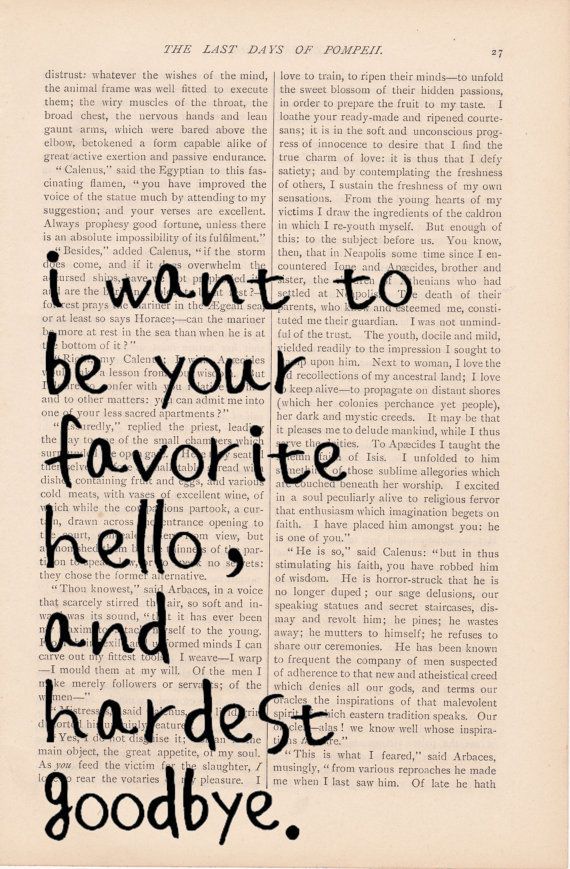 THE LAST DAYS OF POMPEII. 27
i want to
be your
favorite
hello,
and
hardest
goodbye.
distrust: whatever the wishes of the mind,
the animal frame was well fitted to execute
them; the wiry muscles of the throat, the
broad chest, the nervous hands and lean
gaunt arms, which were bared above the
elbow, betokened a form capable alike of
great active exertion and passive endurance.
“Calenus,” said the Egyptian to this fas-
cinating flamen, “you have improved the
voice of the statue much by attending to my
suggestion; and your verses are excellent.
Always prophesy good fortune, unless there
is an absolute impossibility of its fulfilment.”
“Besides,” added Calenus, “if the storm
does come, and if it does overwhelm the
ships,
are the
rest prays the mariner in the Ægean sea,
or at least so says Horace;—can the mariner
be more at rest in the sea than when he is at
the bottom of it?”
my Calenus;
a lesson from
confer with
and to other matters: you can admit me into
one of your less sacred apartments?”
replied the priest, leading
the way to one of the small chambers which
gate.
table spread with
dishes containing fruit and eggs, and various
cold meats, with vessels of excellent wine, of
which while the companions partook, a cur-
tain, drawn across the entrance opening to
the court, from view, but
par-
they chose the former alternative.
“Thou knowest,” said Arbaces, in a voice
that scarcely stirred the air, so soft and in-
ward was its sound, “that it has ever been
my maxim to attach myself to the young.
formed minds I can
carve out my fittest tools. I weave—I warp
—I mould them at my will. Of the men I
make merely followers or servants; of the
women—”
said
Yes, I do not disguise it;
main object, the great appetite, of my soul.
As you feed the victim for the slaughter, I
love to rear the votaries of my pleasure. I
love to train, to ripen their minds—to unfold
the sweet blossom of their hidden passions,
in order to prepare the fruit to my taste. I
loathe your ready-made and ripened courte-
sans; it is in the soft and unconscious prog-
ress of innocence to desire that I find the
true charm of love: it is thus that I defy
satiety; and by contemplating the freshness
of others, I sustain the freshness of my own
sensations. From the young hearts of my
victims I draw the ingredients of the caldron
in which I re-youth myself. But enough of
this: to the subject before us. You know,
then, that in Neapolis some time since I en-
countered Ione and Apæcides, brother and
sister, the Athenians who had
settled at Neapolis. The death of their
parents, who knew and esteemed me, consti-
tuted me their guardian. I was not unmind-
ful of the trust. The youth, docile and mild,
yielded readily to the impression I sought to
stamp upon him. Next to woman, I love the
old recollections of my ancestral land; I love
to keep alive—to propagate on distant shores
(which her colonies perchance yet people),
her dark and mystic creeds. It may be that
it pleases me to delude mankind, while I thus
serve the deities. To Apæcides I taught the
of Isis. I unfolded to him
those sublime allegories which
are couched beneath her worship. I excited
in a soul peculiarly alive to religious fervor
that enthusiasm which imagination begets on
faith. I have placed him amongst you: he
is one of you.”
“He is so,” said Calenus: “but in thus
stimulating his faith, you have robbed him
of wisdom. He is horror-struck that he is
no longer duped; our sage delusions, our
speaking statues and secret staircases, dis-
may and revolt him; he pines; he wastes
away; he mutters to himself; he refuses to
share our ceremonies. He has been known
to frequent the company of men suspected
of adherence to that new and atheistical creed
which denies all our gods, and terms our
oracles the inspirations of that malevolent
spirit of which eastern tradition speaks. Our
oracles—alas! we know well whose inspira-
tions they are.”
“This is what I feared,” said Arbaces,
musingly, “from various reproaches he made
me when I last saw him. Of late he hath